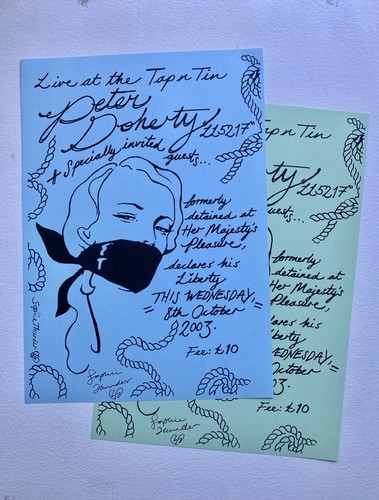 Live at the Tap n Tin
Peter
Doherty
+ Specially invited
guests...
formerly
detained at
Her Majesty's
Pleasure,
declares his
Liberty
THIS WEDNESDAY,
= 8th October =
2003.
Fee: £10
Sophie Thunder
Sophie
Thunder
Tap n Tin
guests...
formerly
detained at
Her Majesty's
Pleasure,
declares his
Liberty
WEDNESDAY,
October
2003.
Fee: £10
Sophie
Thunder